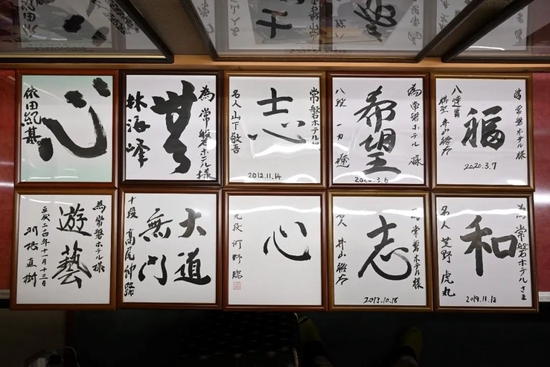 心
依田紀基
為常磐ホテル様
無
林海峰
常磐ホテル様
志
名人 山下敬吾
2012.11.14
為常磐ホテル様
希望
八段 一力遼
為常磐ホテル様
福
八連覇
棋聖 井山裕太
2020.3.7
為常磐ホテル様
遊藝
平成二四年十一月十三日
大道
無門
十段 高尾紳路
心
九段 河野臨
為常磐ホテル様
志
名人 井山裕太
2013.10.18
為常磐ホテルさま
和
名人 芝野虎丸
2019.11.12